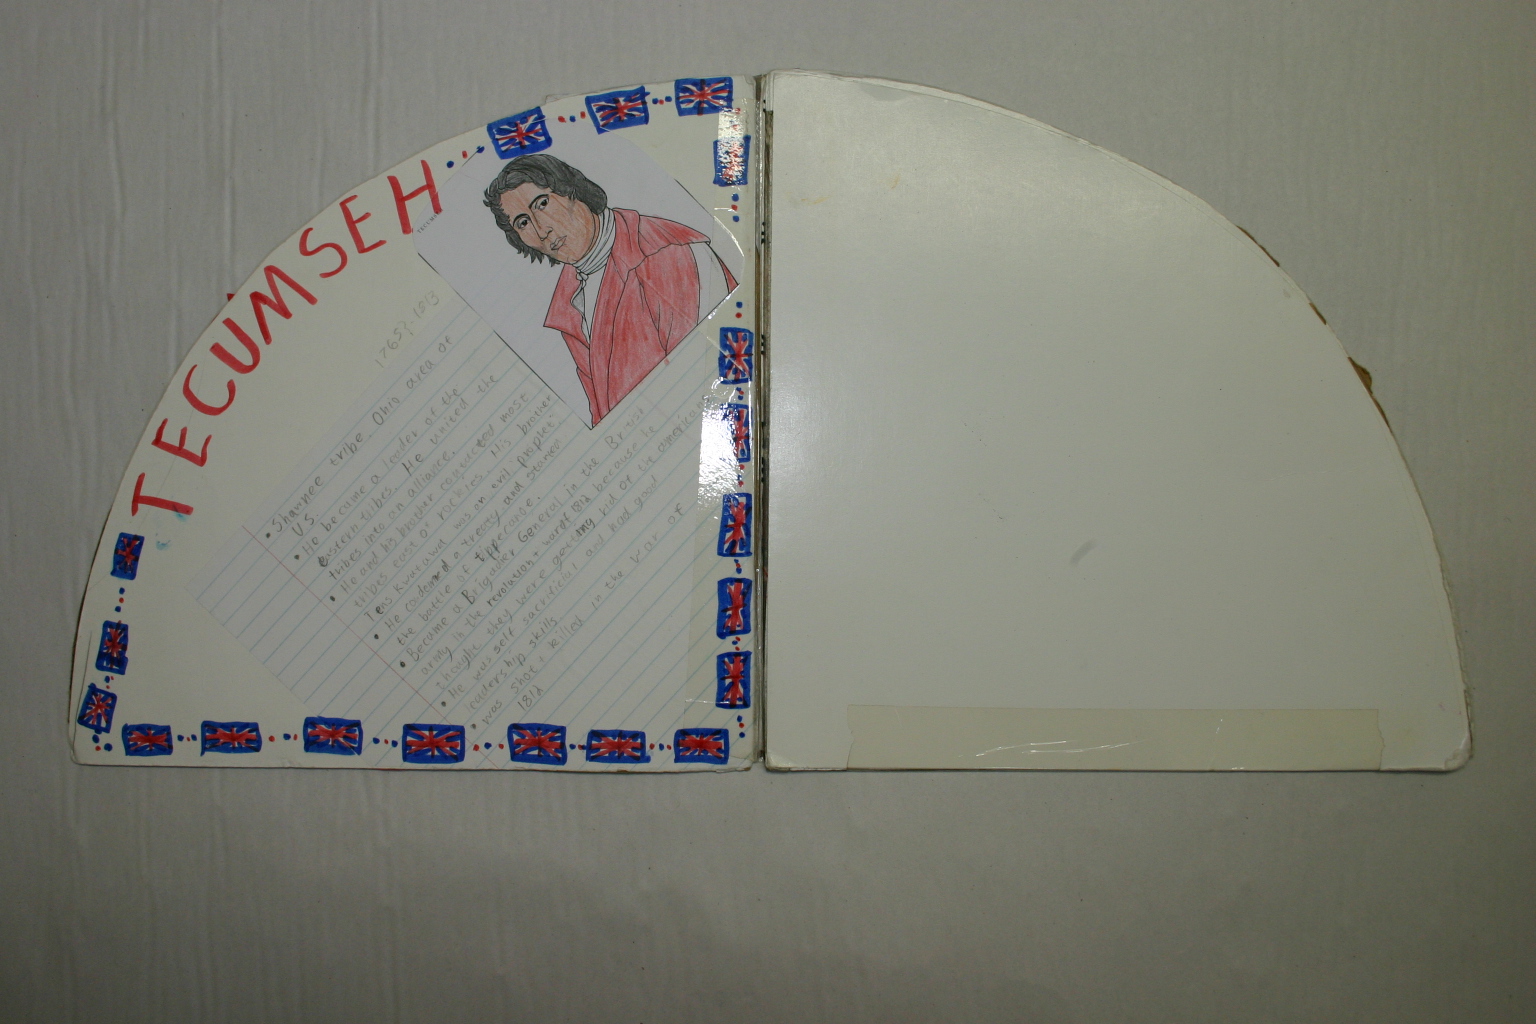 TECUMSEH
1765?-1813
• Shawnee tribe. Ohio area of
US
• He became a leader of the
eastern tribes. He united the
tribes into an alliance.
• He and his brother convinced most
tribes east of rockies. His brother
Tenskwatawa was an evil prophet
• He a treaty and started
the battle of tipperance.
• Became a Brigadier General in the British
army in the revolution + war of 1812 because he
thought they were getting rid of the american
• He was self sacrificial and had good
leadership skills
• was shot + killed in the war of
1812